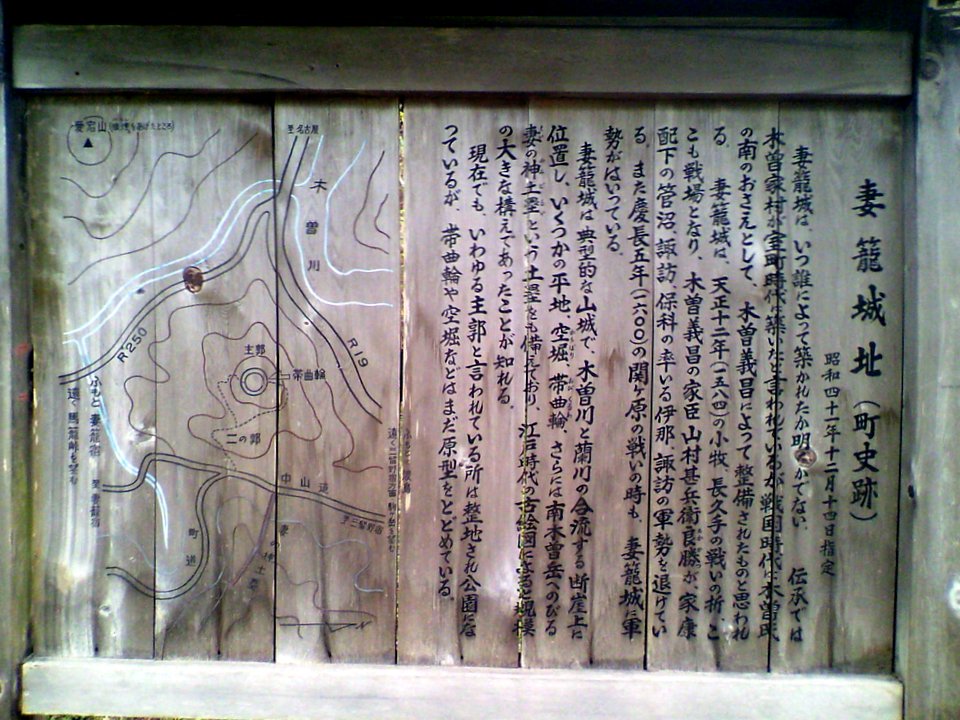 妻籠城址（町史跡）
昭和四十一年十二月十四日指定
妻籠城は、いつ誰によって築かれたか明らかでない。 伝承では
木曽家村が室町時代に築いたと言われているが戦国時代に木曽氏
の南のおさえとして、木曽義昌によって整備されたものと思われ
る。 妻籠城は、天正十二年（一五八四）の小牧、長久手の戦いの折、こ
こも戦場となり、木曽義昌の家臣 山村甚兵衛良勝が家康
配下の管沼、諏訪、保科の率いる伊那 諏訪の軍勢を退けてい
る。また慶長五年（一六〇〇）の関ヶ原の戦いの時も、 妻籠城に軍
勢がはいっている。
妻籠城は典型的な山城で、木曽川と蘭川の合流する断崖上に
位置し、いくつかの平地、空堀、帯曲輪、さらには南木曽岳へのびる
妻の神土塁という土塁をも備えており、江戸時代の古絵図によると規模
の大きな構えであったことが知れる。
現在でも、いわゆる主郭と言われている所は整地され公園にな
っているが、帯曲輪や空堀などはまだ原型をとどめている。
愛宕山
至名古屋
木曽川
R19
R250
主郭
帯曲輪
二の郭
中山道
至三留野宿
至妻籠宿
町道
妻の神土塁
ふもと 妻籠宿
遠く 馬籠峠を望む